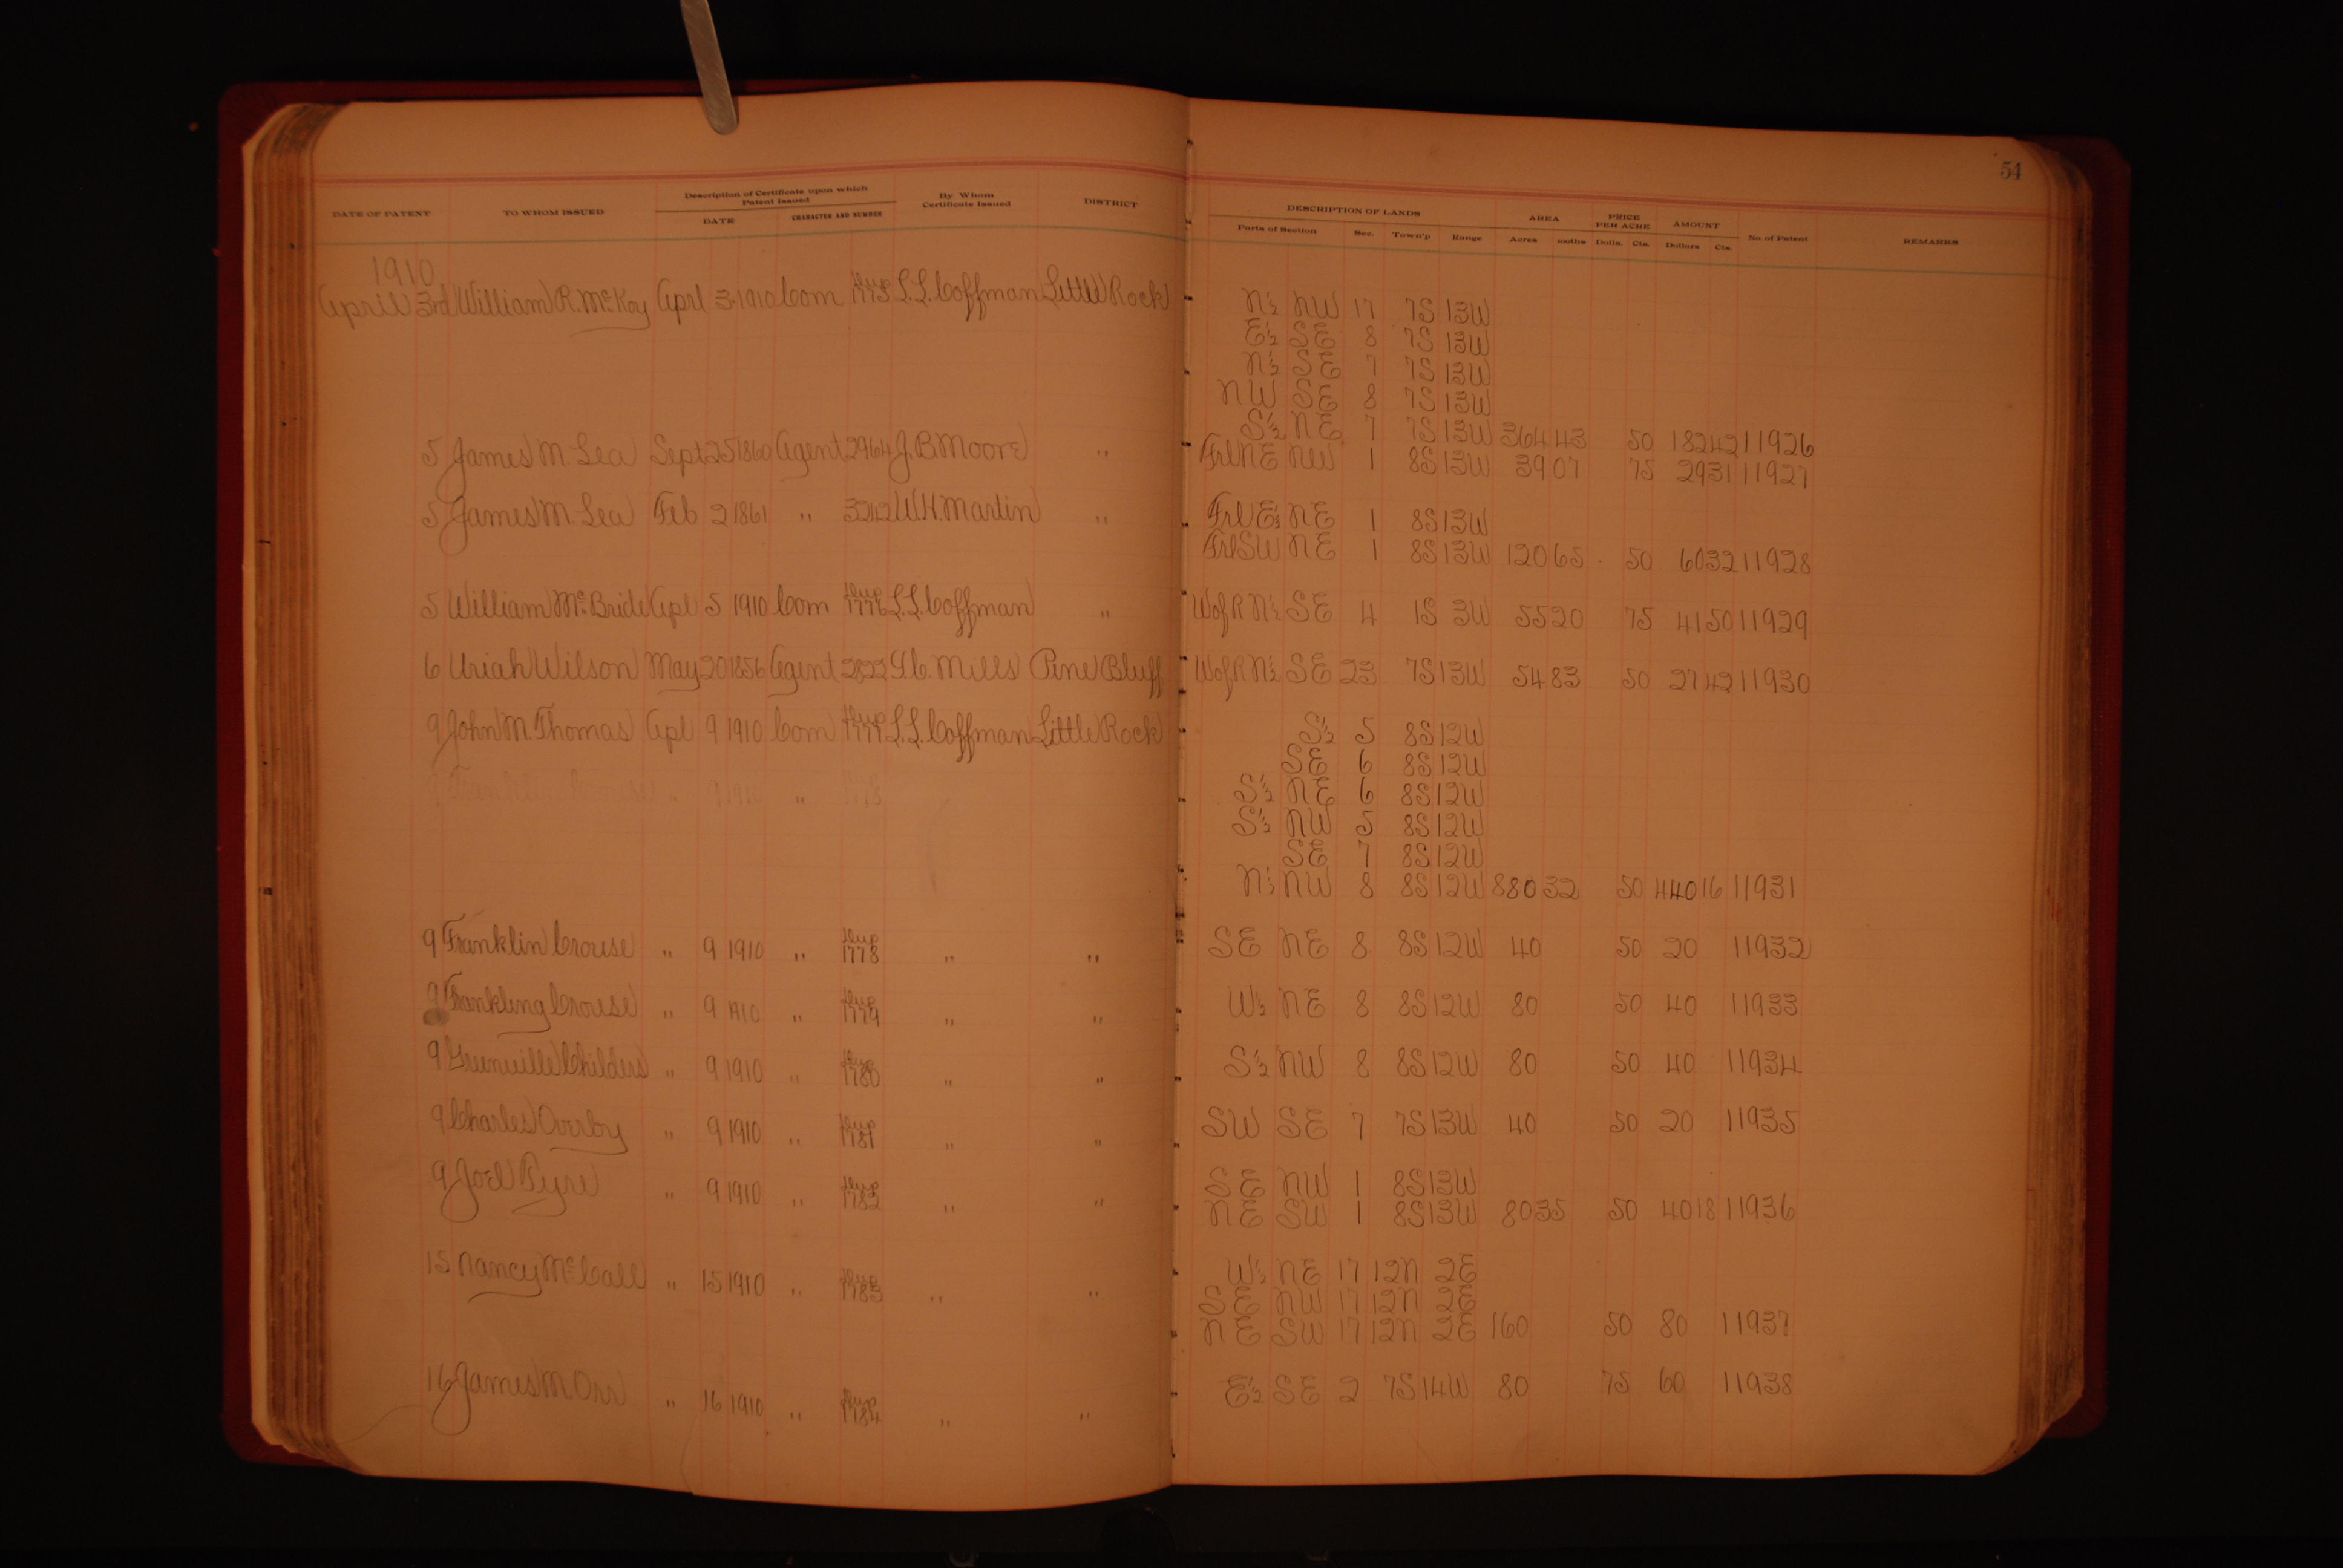 54
DATE OF PATENT TO WHOM ISSUED Description of Certificate upon which Patent Issued DATE CHARACTER AND NUMBER By Whom Certificate Issued DISTRICT DESCRIPTION OF LANDS Parts of Section Sec. Town'p Range AREA Acres 100ths PRICE PER ACRE Dolls. Cts. AMOUNT Dollars Cts. No. of Patent REMARKS
1910
April 3rd William R. McKoy Aprl 3 1910 Com Dup 1775 L.L. Coffman Little Rock N½ NW 17 7S 13W
E½ SE 8 7S 13W
N½ SE 7 7S 13W
NW SE 8 7S 13W
S½ NE 7 7S 13W 364 43 50 182 42 11926
5 James M. Lea Sept 25 1860 Agent 2964 J.B. Moore " Frl NE NW 1 8S 13W 39 07 75 29 31 11927
5 James M. Lea Feb 2 1861 " 3242 W.H. Martin " Frl E½ NE 1 8S 13W
Frl SW NE 1 8S 13W 120 65 50 60 32 11928
5 William McBride Apl 5 1910 Com Dup 1776 L.L. Coffman " W of R N½ SE 4 1S 3W 55 20 75 41 50 11929
6 Uriah Wilson May 20 1856 Agent 2822 Mills Pine Bluff W of R N½ SE 23 7S 13W 54 83 50 27 42 11930
9 John M. Thomas Apl 9 1910 Com Dup 1777 L.L. Coffman Little Rock S½ 5 8S 12W
SE 6 8S 12W
S½ NE 6 8S 12W
S½ NW 5 8S 12W
SE 7 8S 12W
N½ NW 8 8S 12W 880 32 50 440 16 11931
9 Franklin Crouse " 9 1910 " Dup 1778 " " SE NE 8 8S 12W 40 50 20 11932
9 Frankling Crouse " 9 1910 " Dup 1779 " " W½ NE 8 8S 12W 80 50 40 11933
9 Greenville Childers " 9 1910 " Dup 1780 " " S½ NW 8 8S 12W 80 50 40 11934
9 Charles Overby " 9 1910 " Dup 1781 " " SW SE 7 7S 13W 40 50 20 11935
9 Joel Pyre " 9 1910 " Dup 1782 " " SE NW 1 8S 13W
NE SW 1 8S 13W 80 35 50 40 18 11936
15 Nancy McCall " 15 1910 " Dup 1783 " " W½ NE 17 12N 2E
SE NW 17 12N 2E
NE SW 17 12N 2E 160 50 80 11937
16 James M. Orr " 16 1910 " Dup 1784 " " E½ SE 2 7S 14W 80 75 60 11938